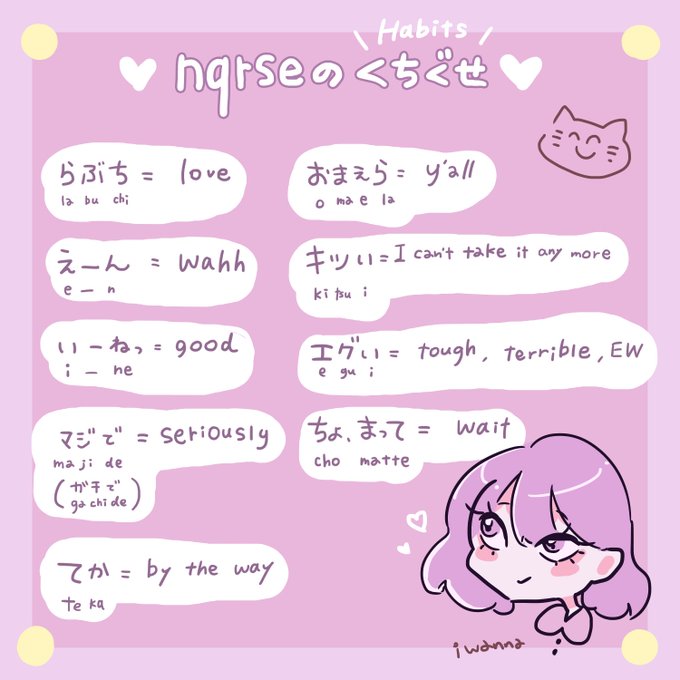 Habits
nqrseのくちぐせ
らぶち = love
la bu chi
えーん = wahh
e — n
いーねっ = good
i — ne
マジで = seriously
ma ji de
(ガチで
gachide)
てか = by the way
te ka
おまえら = y'all
o ma e la
キツい = I can't take it any more
ki tsu i
エグい = tough, terrible, EW
e gu i
ちょ、まって = wait
cho matte
i wanna